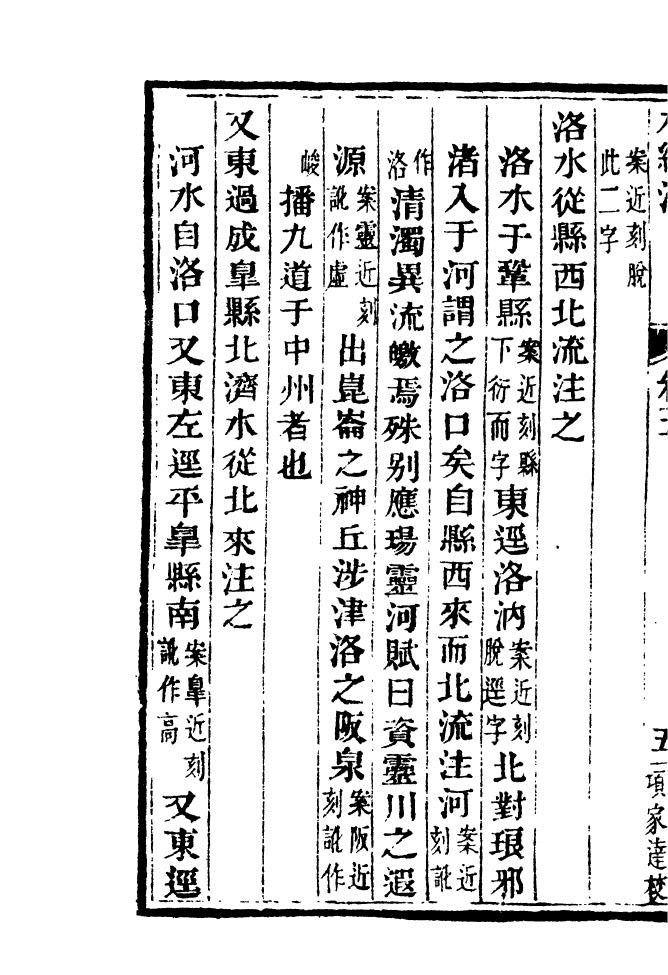 項家達校
案近刻脫此二字
洛水從縣西北流注之
洛水于鞏縣案近刻縣下衍而字東逕洛汭案近刻脫逕字北對琅邪
渚入于河謂之洛口矣自縣西來而北流注河案近刻訛
作洛清濁異流皦焉殊別應瑒靈河賦曰資靈川之遐
源案靈近刻訛作虛出崑崙之神丘涉津洛之阪泉案阪近刻訛作
峻播九道于中州者也
又東過成皐縣北濟水從北來注之
河水自洛口又東左逕平皐縣南案皐近刻訛作高又東逕